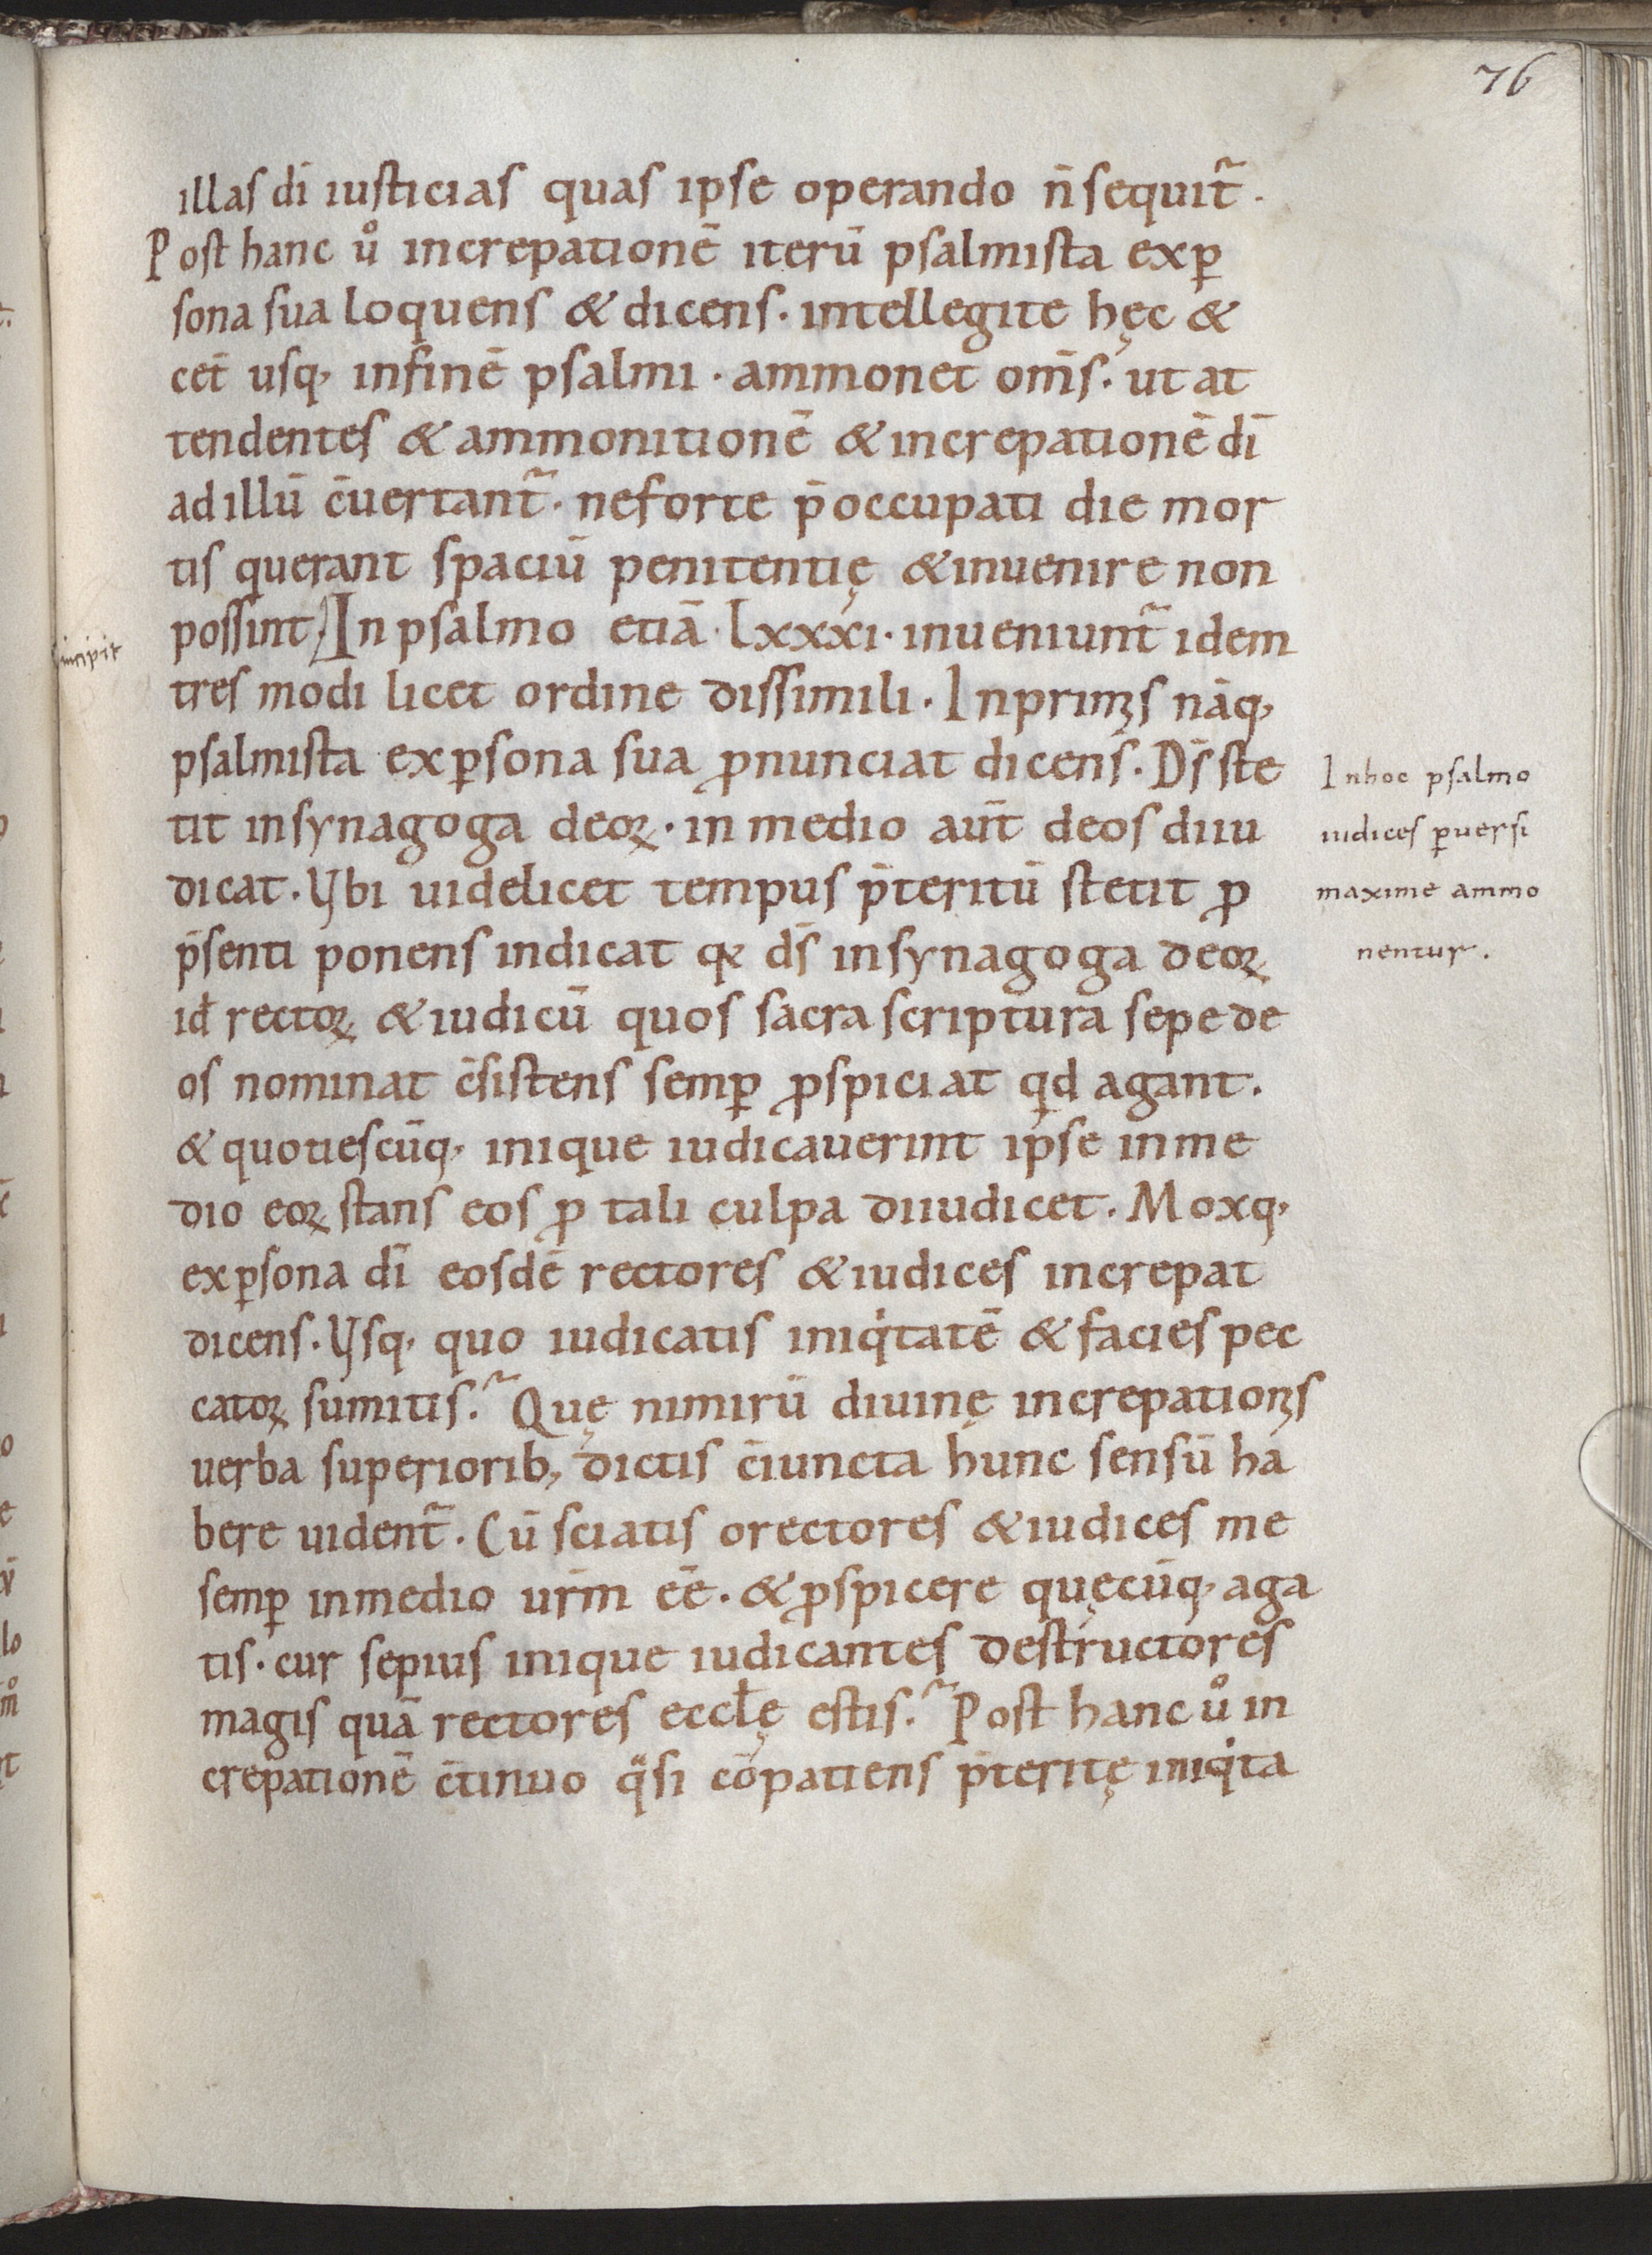 76
illas dī iusticias quas ipse operando n̄ sequit̃.
Post hanc ů increpationē iterū psalmista ex ꝑ
sona sua loquens & dicens. intellegite hęc &
cet̄ usq; in finē psalmi. ammonet om̄s. ut at
tendentes & ammonitionē & increpationē dī
ad illū c̄uertant̃. ne forte p̄occupati die mor
tis querant spaciū penitentię & inuenire non
possint. In psalmo etiā. lxxxi. inueniunt̃ idem
incipit
tres modi licet ordine dissimili. In primis nāq;
psalmista ex ꝑsona sua ꝓnunciat dicens. Ds̄ ste
tit in synagoga deoꝝ. in medio aut̄ deos diiu
dicat. Vbi uidelicet tempus p̄teritū stetit ꝓ
p̄senti ponens indicat qꝫ ds̄ in synagoga deoꝝ
id÷ rectoꝝ & iudicū quos sacra scriptura sepe de
os nominat c̄sistens semꝑ ꝓspiciat qd agant.
& quotiescūq; inique iudicauerint ipse in me
dio eoꝝ stans eos ꝓ tali culpa diiudicet. Moxq;
ex ꝑsona dī eosdē rectores & iudices increpat
dicens. Vsq; quo iudicatis iniqͥtatē & facies pec
catoꝝ sumitis? Quę nimirū diuinę increpationis
uerba superiorib; dictis c̄iuncta hunc sensū ha
bere uident̃. Cū sciatis o rectores & iudices me
semꝑ in medio ur̄m ēe. & ꝓspicere quęcūq; aga
tis. cur sepius inique iudicantes destructores
magis quā rectores eccłę estis? Post hanc ů in
crepationē c̄tinuo qͣsi cōpatiens p̄teritę iniqͥta
In hoc psalmo
iudices ꝑuersi
maxime ammo
nentur.